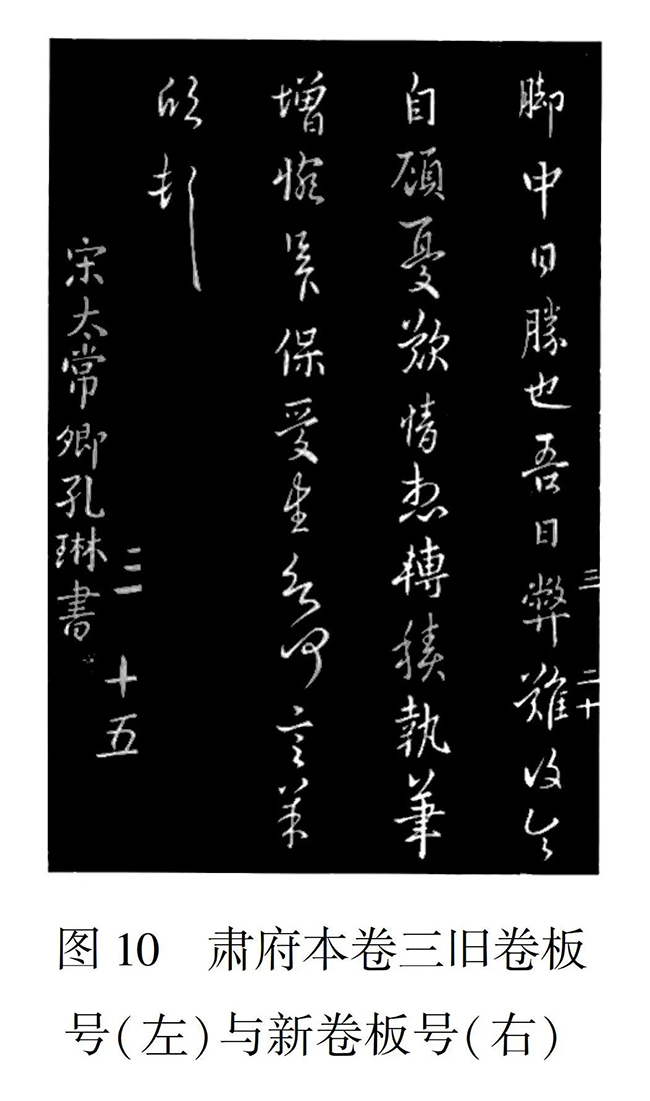 脚中日勝也吾日弊難
三 二十
自顧憂歎情想轉積執筆
增惋保愛生何言
宋太常卿孔琳書
十五
图10 肃府本卷三旧卷板
号(左)与新卷板号(右)